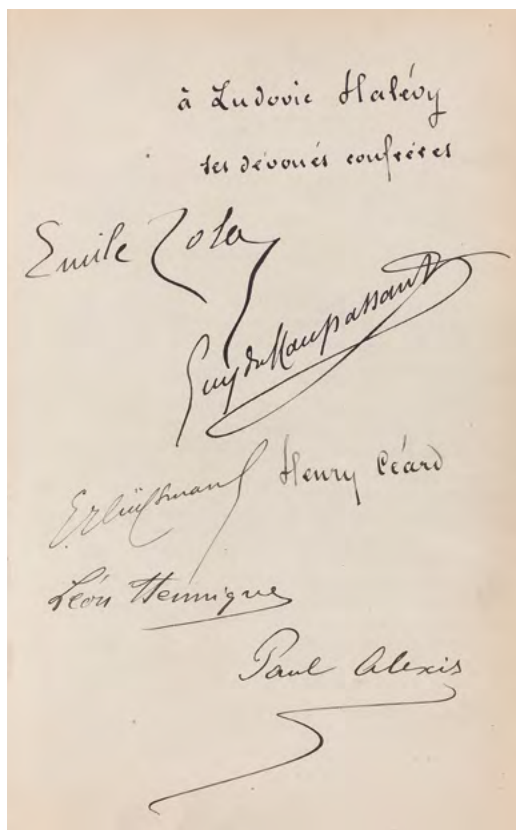 à Ludovic Halévy
ses dévoués confrères
Emile Zola
Guy de Maupassant
Huÿsmans Henry Céard
Léon Hennique
Paul Alexis